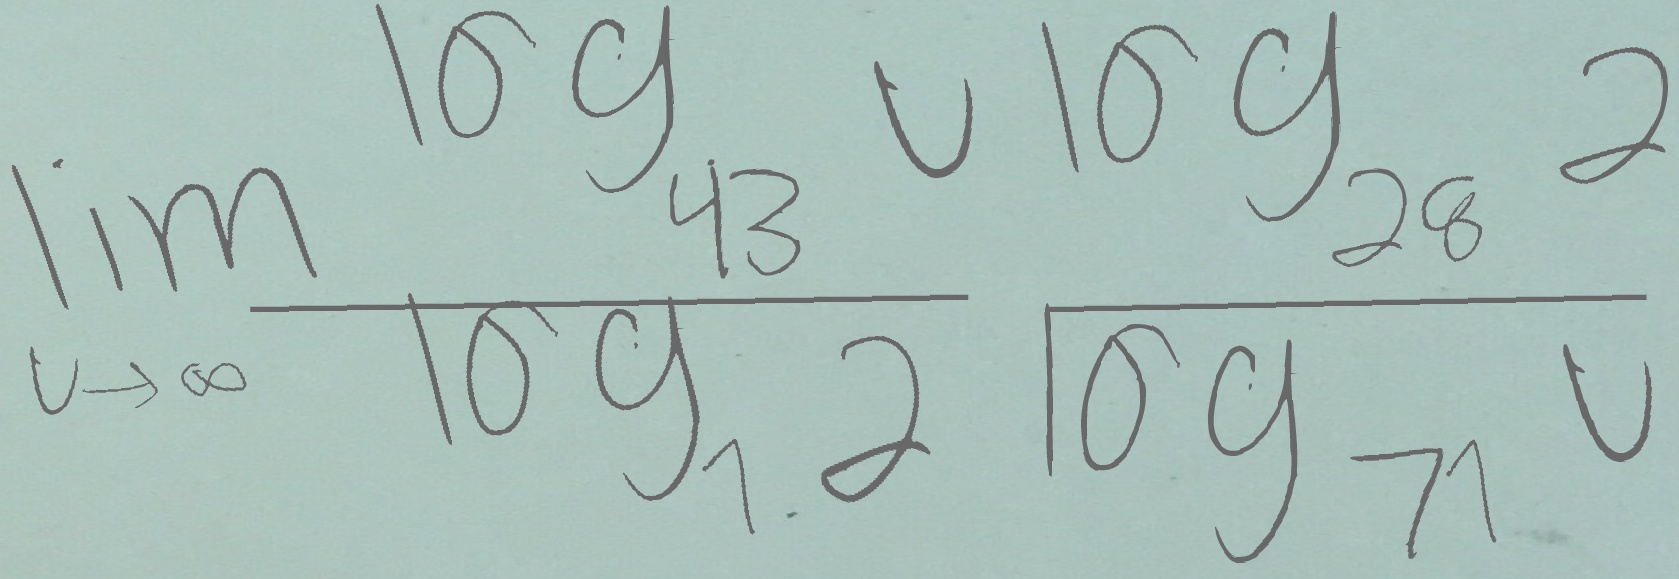 \lim_{v \to \infty} \frac{\log_{43} v}{\log_{1} 2} \frac{\log_{28} 2}{\log_{71} v}